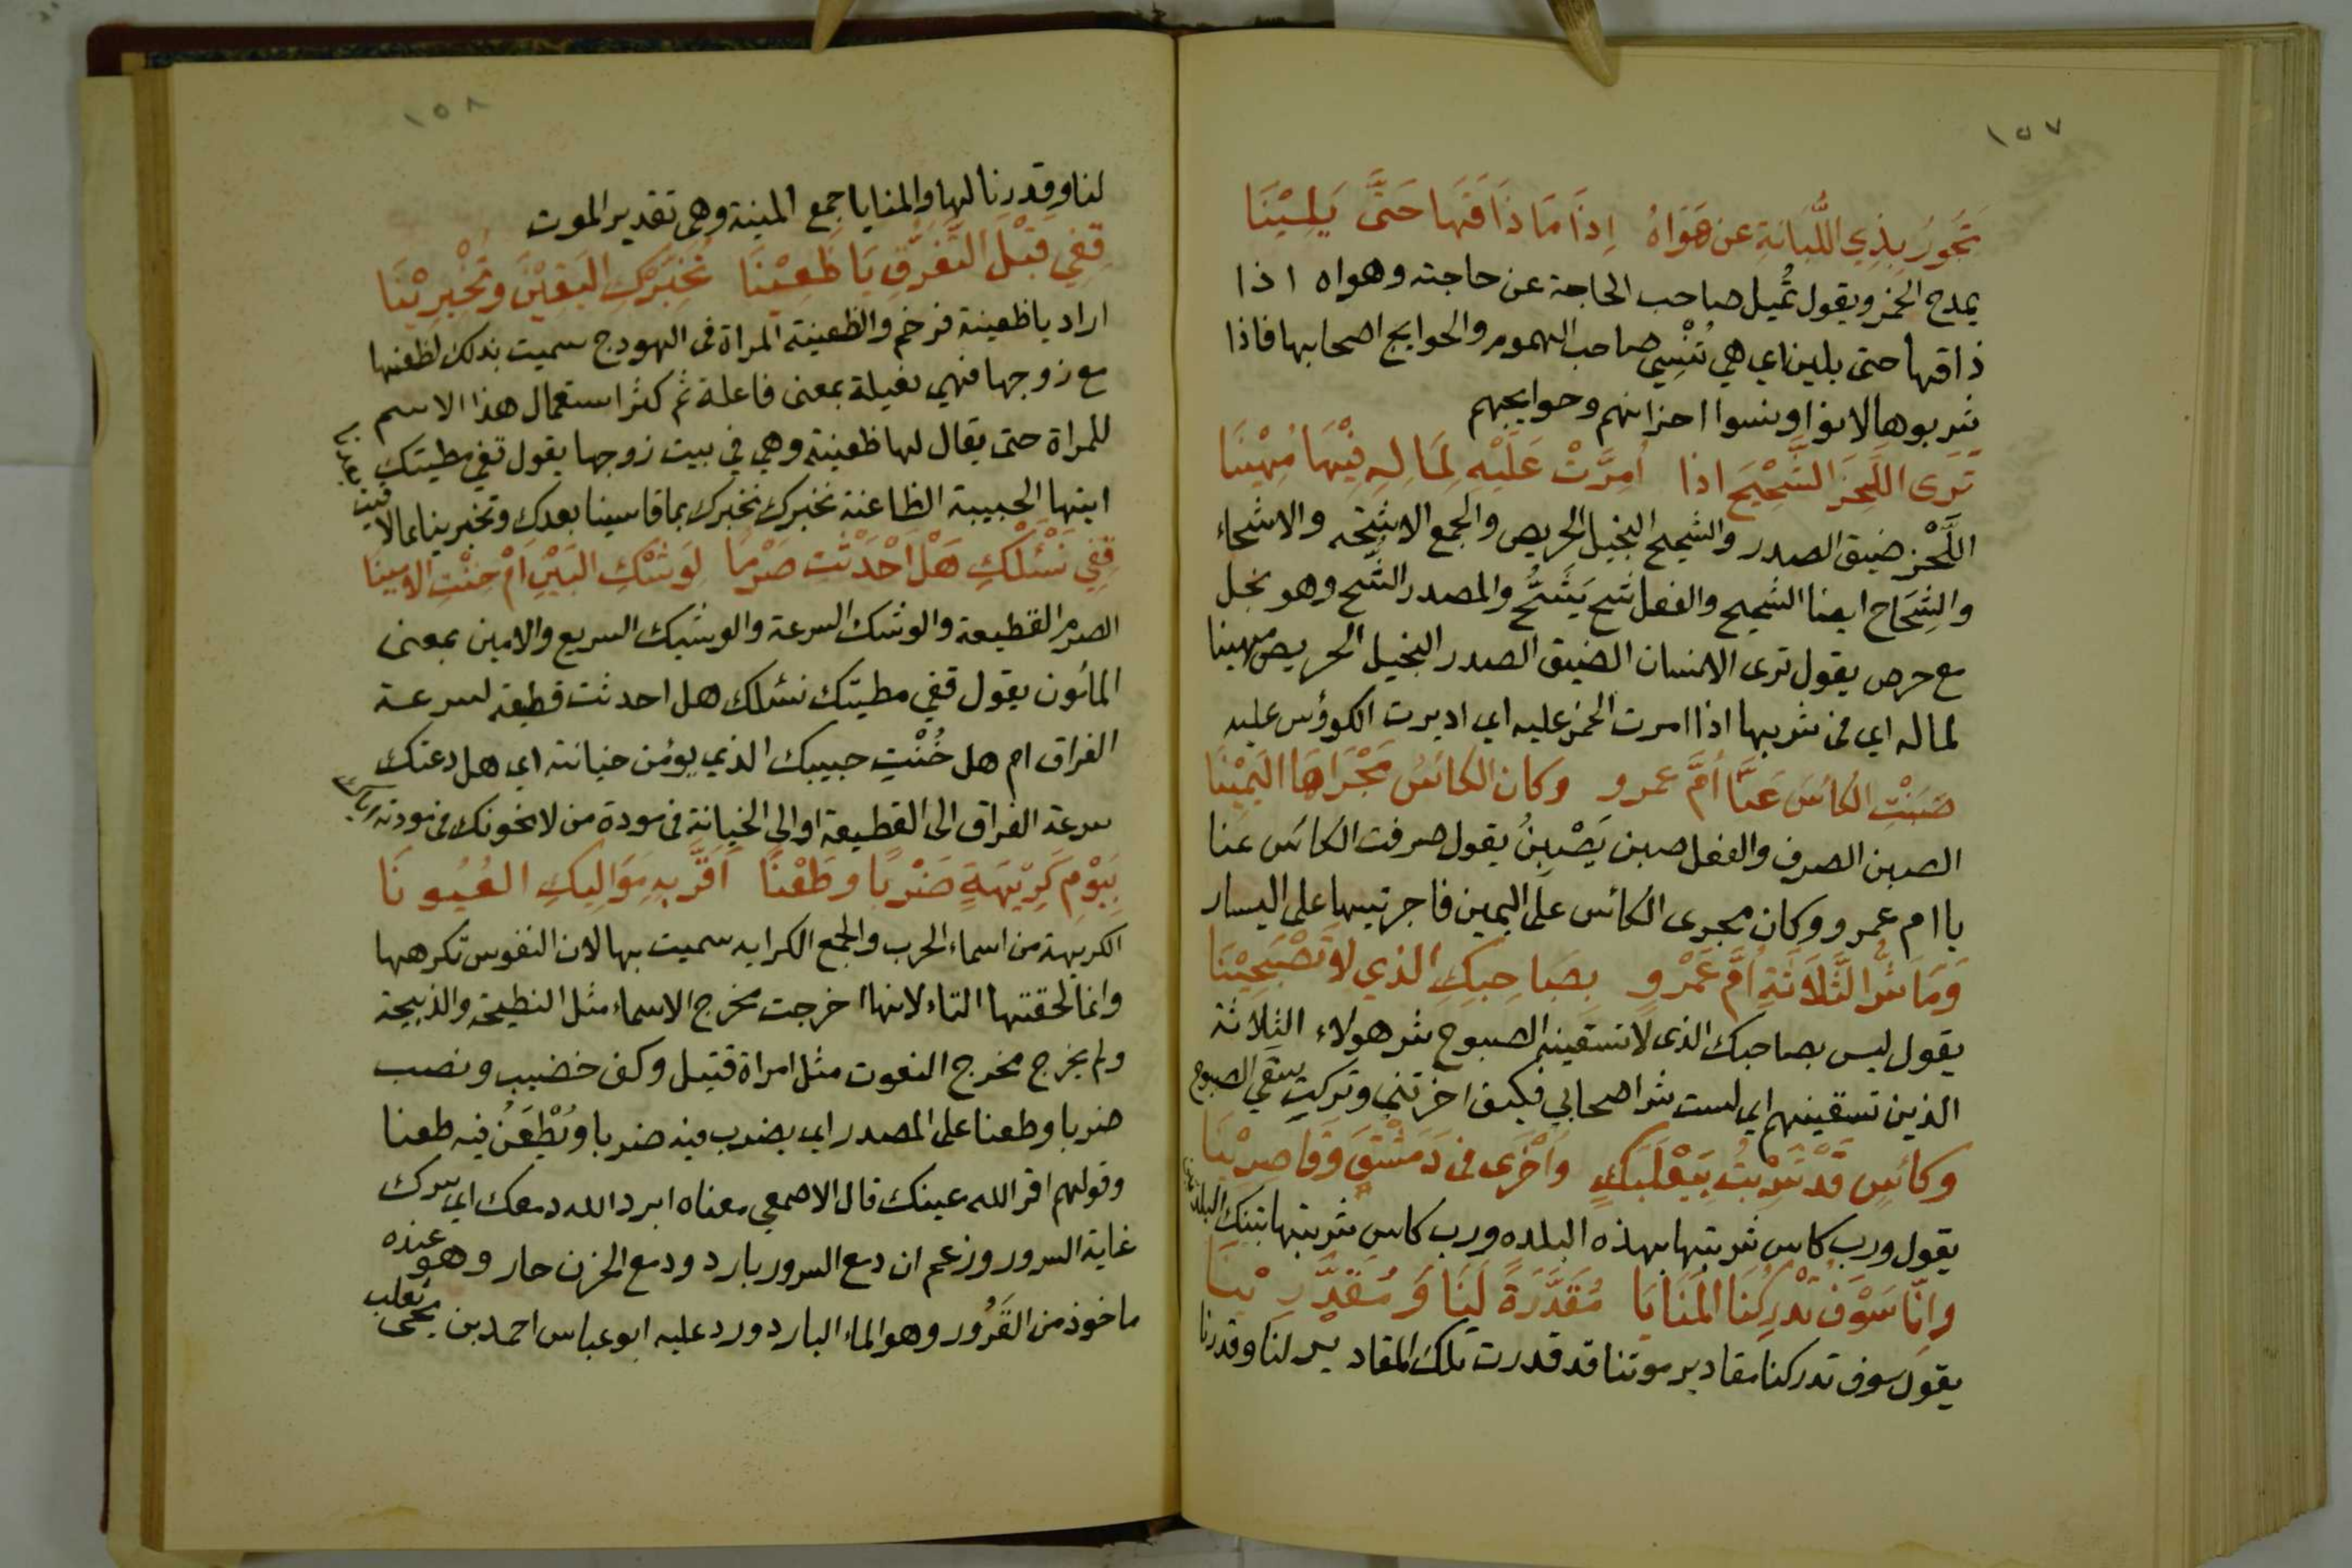 ١٥٧
تَجُورُ بِذِي اللُّبَانَةِ عن هَوَاهُ اِذَا مَا ذَاقَهَا حَتَّى يَلِيْنَا
يمدح الخمر ويقول تُميل صاحب الحاجة عن حاجته وهواه اذا
ذاقها حتى يلين اي هي تُنْسِي صاحب الهموم والحوايج اصحابها فاذا
شربوها لانوا ونسوا احزانهم وحوايجهم
تَرى اللَّحِزَ الشَّحِيْحَ اذا اُمِرَّتْ عَلَيْهِ لِمَالِهِ فِيْهَا مُهِيْنَا
اللَّحْز ضيق الصدر والشحيح البخيل الحريص والجمع الاشِحّه والاشحاء
والشِحَاح ايضا الشحيح والفعل شح يَشَحُّ والمصدر الشُّح وهو بخل
مع حرص يقول ترى الانسان الضيق الصدر البخيل الحريص مهينا
لماله اي في شربها اذا امرت الخمر عليه اي اديرت الكوؤس عليه
صَبَنْتِ الكأسَ عَنَّا اُمَّ عمرو وكان الكأسُ مَجْرَاهَا اليَمِيْنَا
الصبن الصرف والفعل صبن يَصْبِنُ يقول صرفت الكأس عنا
يا ام عمرو وكان مجرى الكأس على اليمين فاجرتيها على اليسار
وَمَا شَرُّ الثَّلَاثَةِ اُمَّ عَمْرٍو بِصَاحِبِكِ الذي لا تَصْبَحِيْنَا
يقول ليس بصاحبك الذى لا تسقينه الصبوح شر هولاء الثلاثة
الذين تسقينهم اي لست شر اصحابي فكيف اخرتني وتركتِ سقي الصبوح
وكأسٍ قَدْ شَرِبْتُ بِبَعْلَبَكٍّ وَاُخْرَى فى دَمَشْقَ وَقَاصِرِيْنَا
يقول ورب كاس شربتها بهذه البلده ورب كاس شربتها بتينك البلدتين
وإنّا سَوْفَ تُدْرِكُنَا المَنَايَا مُقَدَّرَةً لَنَا وَمُقَدَّرِيْنَا
يقول سوف تدركنا مقادير موتنا قد قدرت تلك المقادير لنا وقدرنا
١٥٨
لنا وقدرنا لها والمنايا جمع المنية وهى تقدير الموت
قِفِي قَبْلَ التَّفَرُّقِ يَا ظَعِيْنَا نُخَبِّرْكِ اليَقِيْنَ وَتُخْبِرِيْنَا
اراد يا ظعينة فرخم والظعينة المراة فى الهودج سميت بذلك لظعنها
مع زوجها فهي فعيلة بمعنى فاعلة ثم كثر استعمال هذا الاسم
للمراة حتى يقال لها ظعينة وهي في بيت زوجها يقول قفي مطيتك
ايتها الحبيبة الظاعنة نخبرك نخبرك بما قاسينا بعدك وتخبرينا بما لاقيت
قِفِي نَسْئَلْكِ هَلْ اَحْدَثْتِ صَرْمًا لِوَشْكِ البَيْنِ اَمْ خُنْتِ الامِينَا
الصرم القطيعة والوشك السرعة والوشيك السريع والامين بمعنى
المأمون يقول قفي مطيتك نسئلك هل احدثت قطيعة لسرعة
الفراق ام هل خُنْتِ حبيبك الذي يؤمن خيانته اي هل دعتك
سرعة الفراق الى القطيعة او الى الخيانة فى مودة من لا يخونك فى مودته
بِيَوْمِ كَرِيْهَةٍ ضَرْبًا وطَعْنًا اَقَرَّ بِهِ مَوَالِيكِ العُيُونَا
الكريهة من اسماء الحرب والجمع الكرايه سميت بها لان النفوس تكرهها
وانما لحقتها التاء لانها اخرجت مخرج الاسماء مثل النطيحة والذبيحة
ولم يخرج مخرج النعوت مثل امراة قتيل وكف خضيب ونصب
ضربا وطعنا على المصدر اي يضرب فيه ضربا ويُطْعَنُ فيه طعنا
وقولهم اقر الله عينك قال الاصمعي معناه ابرد الله دمعك اي سرك
غاية السرور وزعم ان دمع السرور بارد ودمع الحزن حار وهو عنده
ماخوذ من القَرُور وهو الماء البارد ورد عليه ابو عباس احمد بن يحيى ثعلب